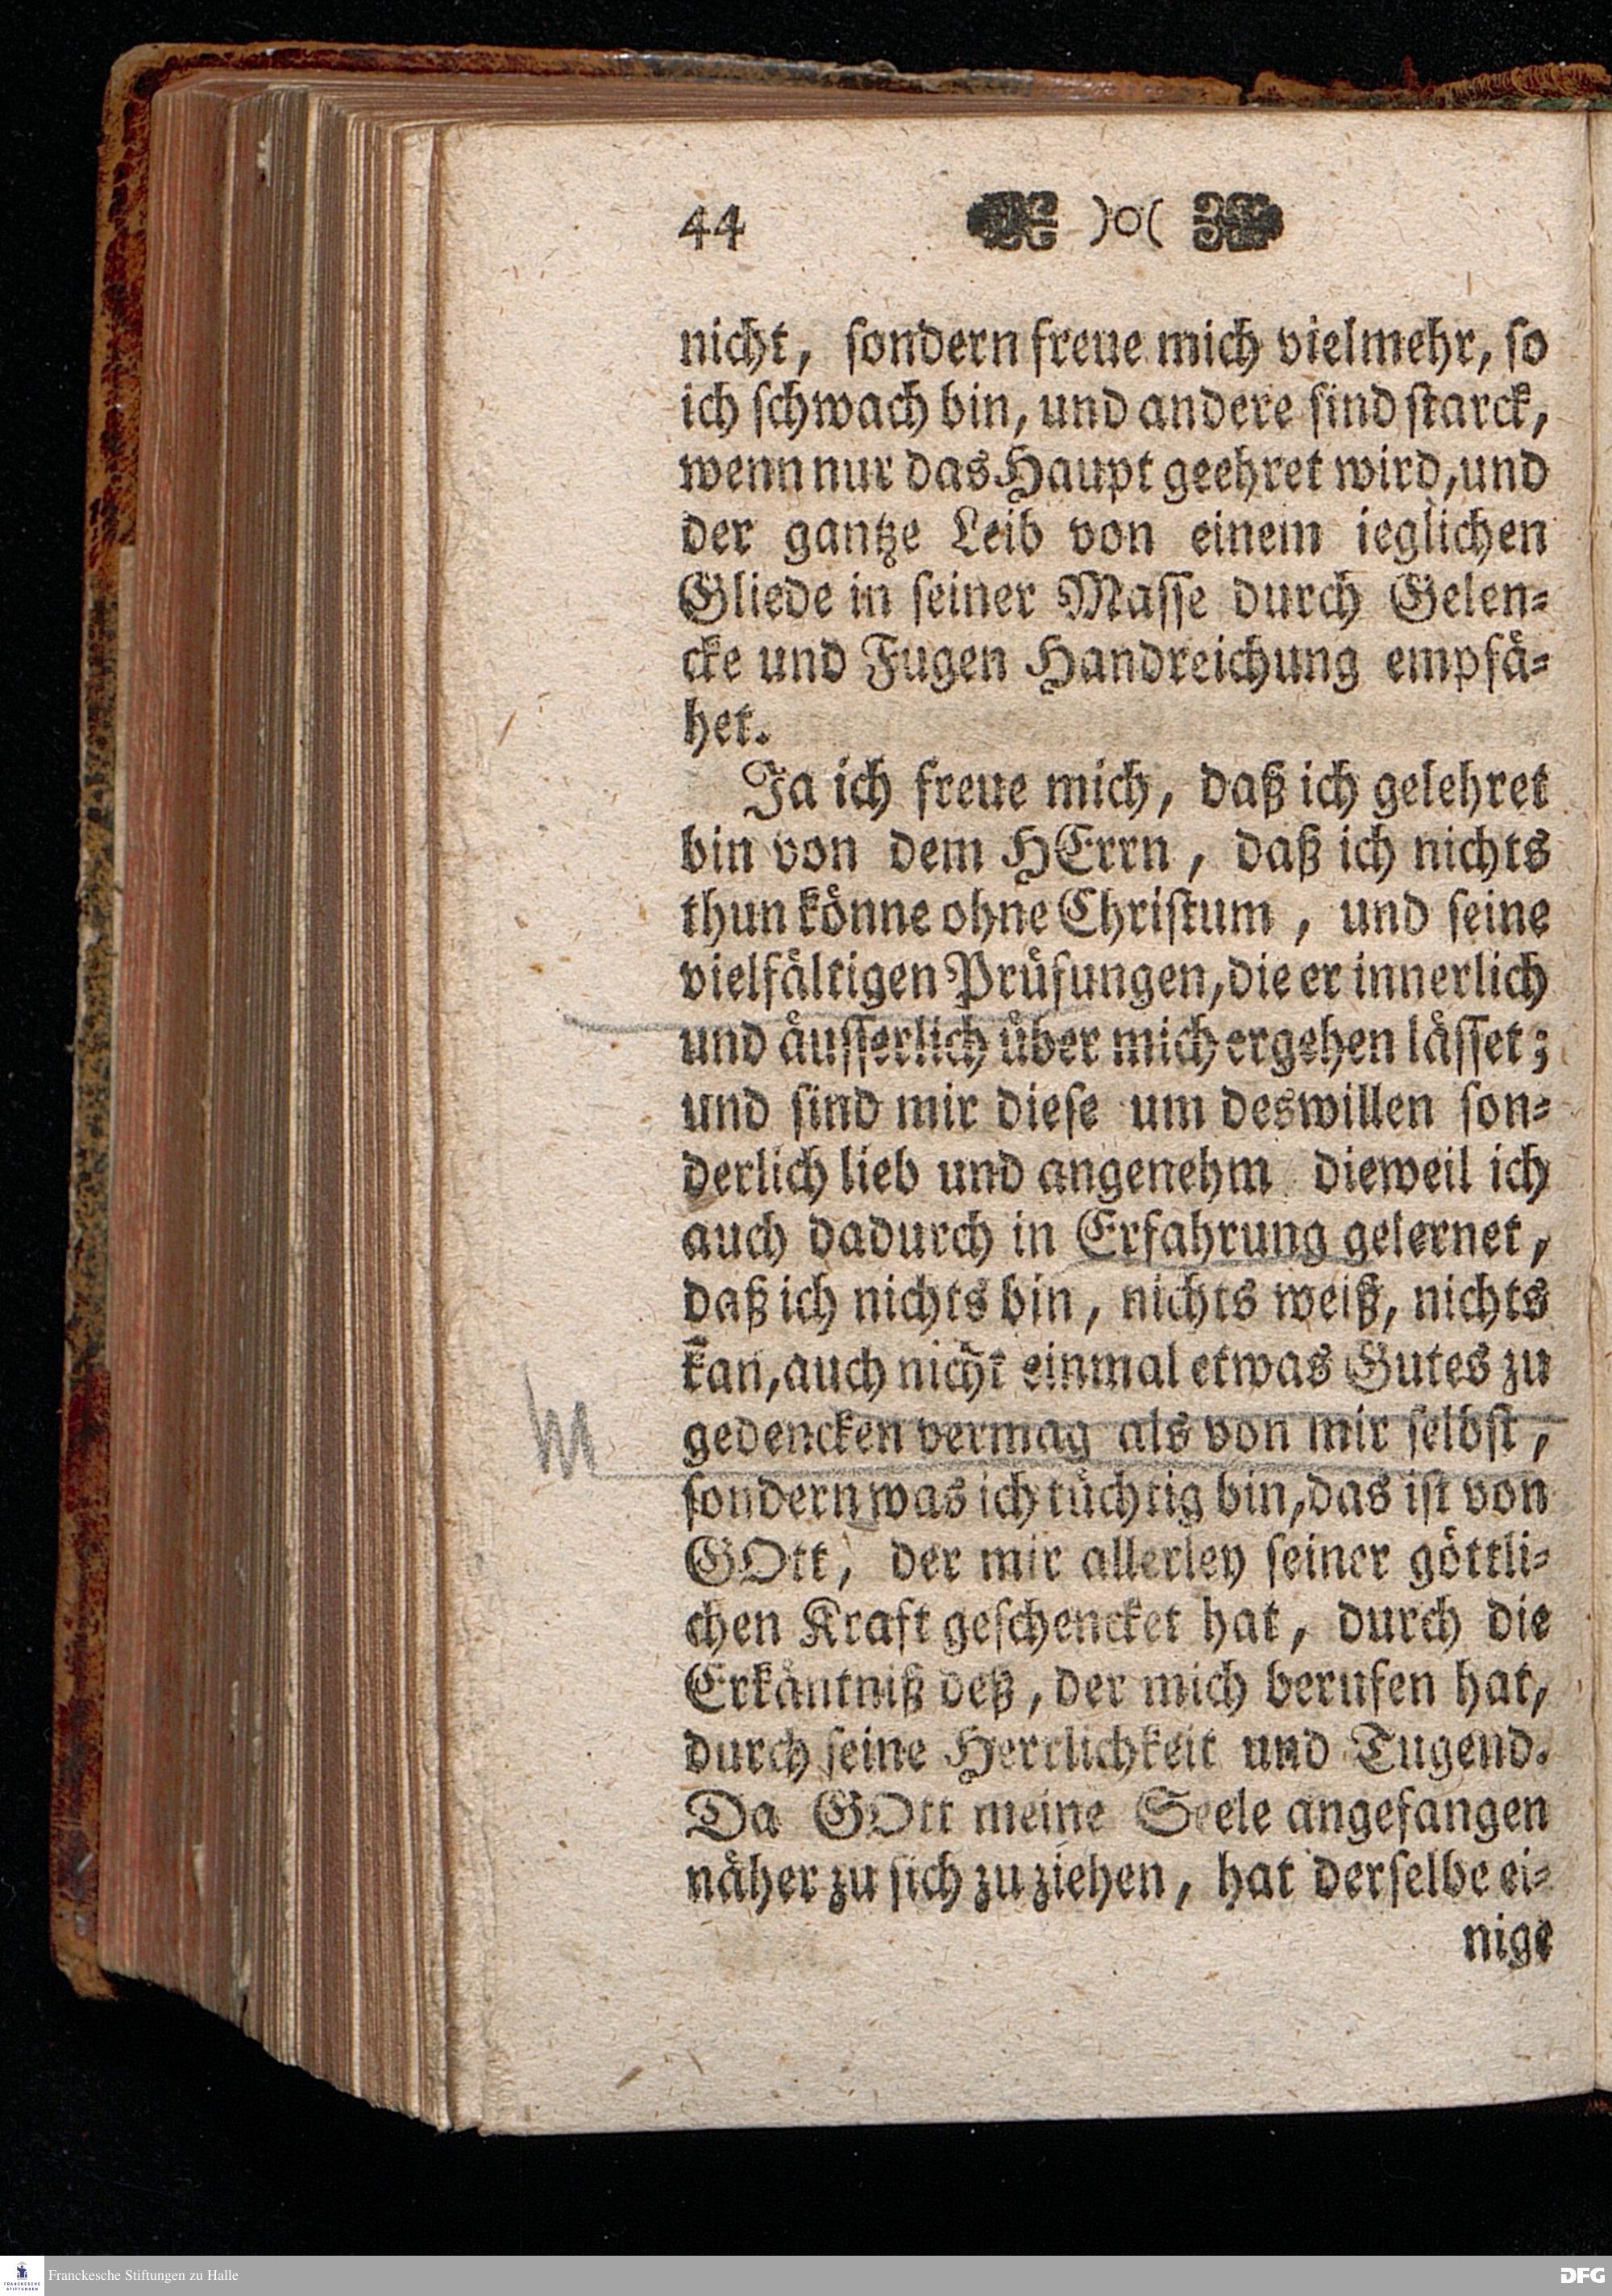 44 )o(
nicht, sondern freue mich vielmehr, so
ich schwach bin, und andere sind starck,
wenn nur das Haupt geehret wird, und
der gantze Leib von einem ieglichen
Gliede in seiner Masse durch Gelen-
cke und Fugen Handreichung empfä-
het.
Ja ich freue mich, daß ich gelehret
bin von dem HErrn, daß ich nichts
thun könne ohne Christum, und seine
vielfältigen Prüfungen, die er innerlich
und äusserlich über mich ergehen lässet;
und sind mir diese um deswillen son-
derlich lieb und angenehm dieweil ich
auch dadurch in Erfahrung gelernet,
daß ich nichts bin, nichts weiß, nichts
kan, auch nicht einmal etwas Gutes zu
gedencken vermag als von mir selbst,
sondern was ich tüchtig bin, das ist von
GOtt, der mir allerley seiner göttli-
chen Kraft geschencket hat, durch die
Erkäntniß deß, der mich berufen hat,
durch seine Herrlichkeit und Tugend.
Da GOtt meine Seele angefangen
näher zu sich zu ziehen, hat derselbe ei-
nige
Franckesche Stiftungen zu Halle
DFG